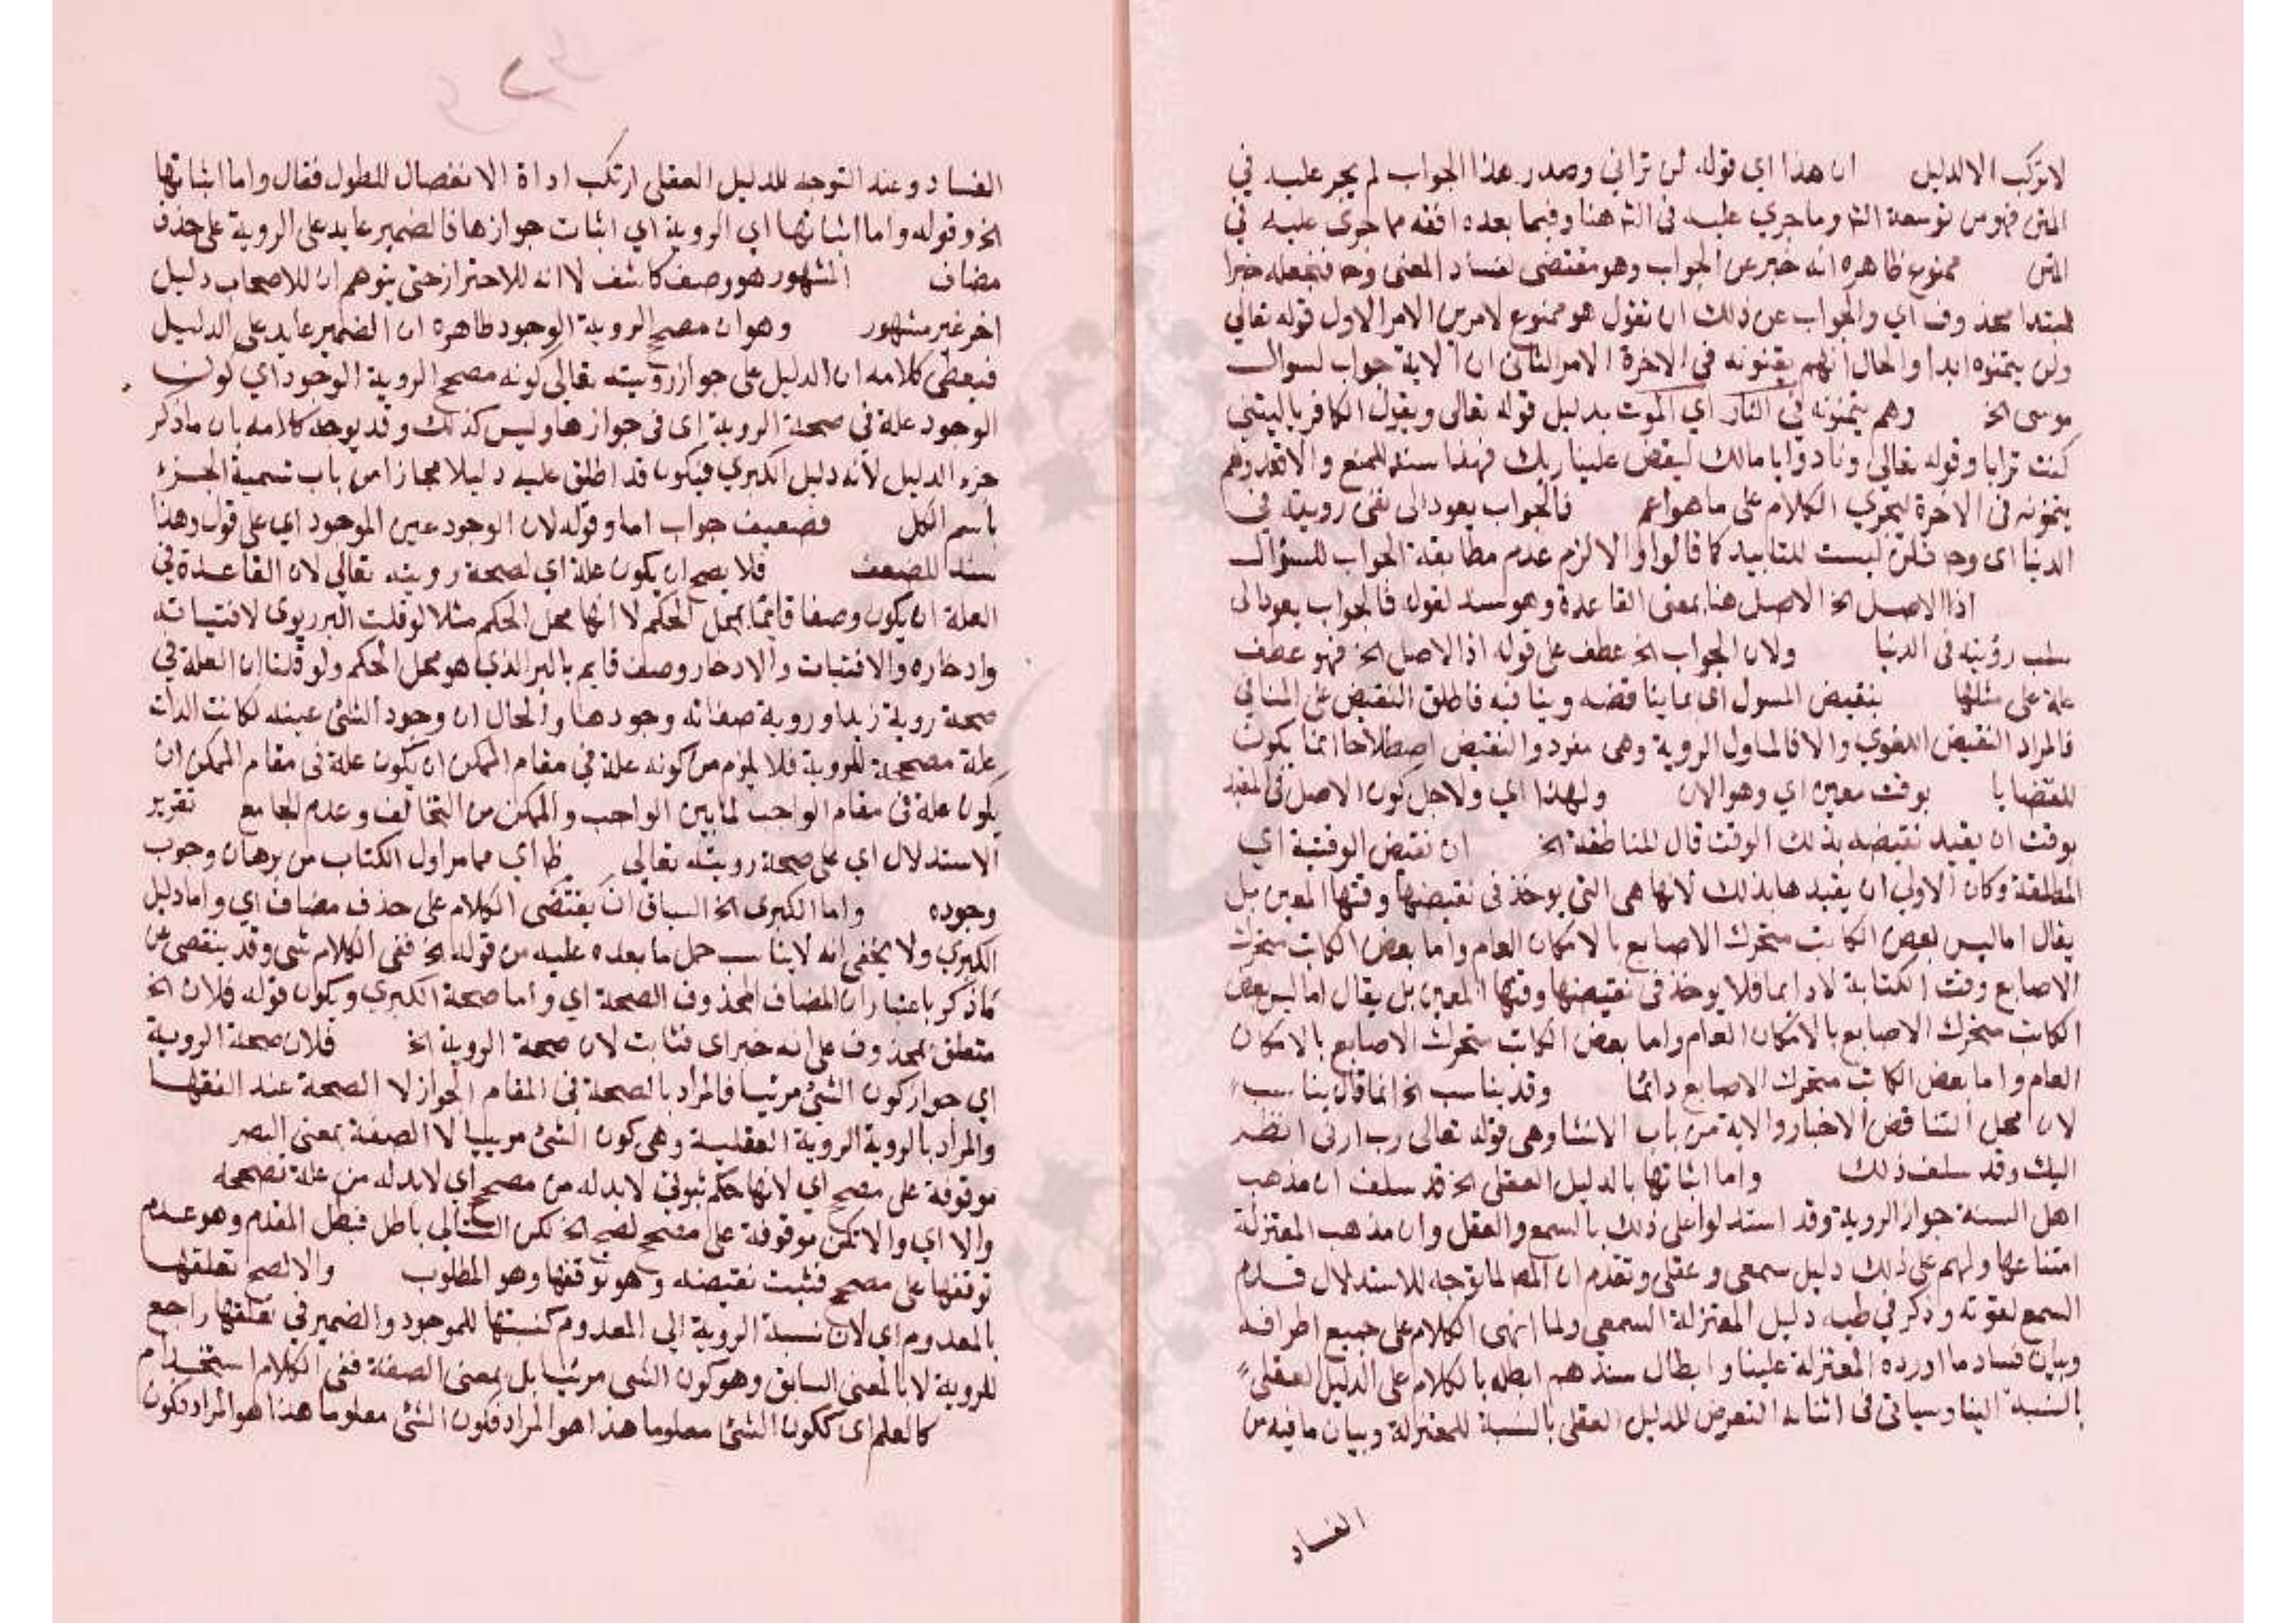 لا تركب الا لدليل ان هذا اي قوله لن تراني وصدر هذا الجواب لم يجر عليه في
المتن فهو من توسعة الشا وما جري عليه في الشـ هنا وفيما بعده افقه مما جري عليه في
المتن ممنوع ظاهره انه خبر عن الجواب وهو مقتضى لفساد المعنى وحـ فنجعله خبرا
لمبتدا محذوف اي والجواب عن ذلك ان نقول هو ممنوع لامرين الامر الاول قوله تعالي
ولن يتمنوه ابدا والحال انهم يتمنونه في الاخرة الامر الثاني ان الاية جواب لسوال
موسى الخ وهم يتمنونه في النار اي الموت بدليل قوله تعالى ويقول الكافر يا ليتني
كنت ترابا وقوله تعالي ونادوا يا مالك ليقض علينا ربك فهذا سند للمنع والا فقد وهم
يتمنونه في الاخرة ليجري الكلام على ما هو اعم فالجواب يعود الى نفي رويته في
الدنيا اى وحـ فلن ليست للتابيد كما قالوا والا لزم عدم مطابقة الجواب للسؤال
اذ الاصل الخ الاصل هنا بمعنى القاعدة وهو سند لقوله فالجواب يعود الى
سلب رؤيته في الدنيا ولان الجواب الخ عطف على قوله اذ الاصل الخ فهو عطف
علة على مثلها بنقيض المسول اي بما يناقضه وينافيه فاطلق النقيض على المنافي
فالمراد النقيض اللغوي والا فالمسول الروية وهى مفرد والنقيض اصطلاحا انما يكون
للقضايا بوقت معين اي وهو الان ولهذا اي ولاجل كون الاصل في المقيد
بوقت ان يقيد نقيضه بذلك الوقت قال المناطقة الخ ان نقيض الوقتية اي
المطلقة وكان الاولى ان يقيدها بذلك لانها هي التي يوخذ في نقيضها وقتها المعين بل
يقال اما ليس بعض الكاتب متحرك الاصابع بالامكان العام واما بعض الكاتب متحرك
الاصابع وقت الكتابة لا دايما فلا يوخذ في نقيضها وقتها المعين بل يقال اما ليس بعض
الكاتب متحرك الاصابع بالامكان العام واما بعض الكاتب متحرك الاصابع بالامكان
العام واما بعض الكاتب متحرك الاصابع دائما وقد يناسب الخ انما قال يناسب
لان محل التناقض الاخبار والاية من باب الانشا وهي قوله تعالى رب ارنى انظر
اليك وقد سلف ذلك واما اثباتها بالدليل العقلى الخ قد سلف ان مذهب
اهل السنة جواز الروية وقد استدلوا على ذلك بالسمع والعقل وان مذهب المعتزلة
امتناعها ولهم على ذلك دليل سمعي وعقلي وتقدم ان المصـ لما توجه للاستدلال قدم
السمع لقوته وذكر في طيه دليل المعتزلة السمعي ولما انهى الكلام على جميع اطرافه
وبيان فساد ما اورده المعتزلة علينا وابطال سندهم ابطله بالكلام على الدليل العقلى
بالنسبة الينا وسياتي فى اثنائه التعرض للدليل العقلى بالنسبة للمعتزلة وبيان ما فيه من
الفساد
الفساد وعند التوجه للدليل العقلي ارتكب اداة الانفصال للطول فقال واما اثباتها
الخ وقوله واما اثباتها اي الروية اي اثبات جوازها فالضمير عايد على الروية على حذف
مضاف المشهور هو وصف كاشف لا انه للاحتراز حتى يتوهم ان للاصحاب دليل
اخر غير مشهور وهو ان مصحح الروية الوجود ظاهره ان الضمير عايد على الدليل
فيقتضى كلامه ان الدليل على جواز رويته تعالى كونه مصحح الروية الوجود اي كون
الوجود علة في صحة الروية اى فى جوازها وليس كذلك وقد يوجه كلامه بان ما ذكر
جزء الدليل لانه دليل الكبري فيكون قد اطلق عليه دليلا مجازا من باب تسمية الجزء
باسم الكل فضعيف جواب اما وقوله لان الوجود عين الموجود اي على قول وهذا
سند للضعف فلا يصح ان يكون علة اي لصحة رويته تعالي لان القاعدة في
العلة ان يكون وصفا قائما بمحل الحكم لا انها محل الحكم مثلا لو قلت البر ربوى لاقتياته
وادخاره والاقتيات والادخار وصف قايم بالبر الذي هو محل الحكم ولو قلنا ان العلة في
صحة روية زيد او روية صفاته وجودها والحال ان وجود الشئ عينه لكانت الذات
علة مصححة للروية فلا يلزم من كونه علة في مقام الممكن ان يكون علة فى مقام الممكن ان
يكون علة فى مقام الواجب لما بين الواجب والممكن من التخالف وعدم الجامع تقرير
الاستدلال اي على صحة رويته تعالي ظا اي مما مر اول الكتاب من برهان وجوب
وجوده واما الكبرى الخ السياق ان يقتضى الكلام على حذف مضاف اي واما دليل
الكبري ولا يخفى انه لا يناسب حمل ما بعده عليه من قوله الخ ففى الكلام شى وقد ينقصى عن
ما ذكر باعتبار ان المضاف المحذوف الصحة اي واما صحة الكبري ويكون قوله فلان الخ
متعلق بمحذوف على انه خبر اى فثابت لان صحة الروية الخ فلان صحة الروية
اي جواز كون الشئ مرئيا فالمراد بالصحة في المقام الجواز لا الصحة عند الفقها
والمراد بالروية الروية العقلية وهي كون الشئ مرييا لا الصفة بمعنى البصر
موقوفة على مصحح اي لانها حكم ثبوتي لا بد له من مصحح اي لا بد له من علة تصححه
والا اي والا تكن موقوفة على مصحح لصح الخ لكن التالي باطل فبطل المقدم وهو عدم
توقفها على مصحح فثبت نقيضه وهو توقفها وهو المطلوب والا لصح تعلقها
بالمعدوم اي لان نسبة الروية الي المعدوم كنسبتها للموجود والضمير في تعلقها راجع
للروية لا بالمعنى السابق وهو كون الشى مرئيا بل بمعنى الصفة ففى الكلام استخدام
كالعلم اى ككون الشئ معلوما هذا هو المراد فكون الشئ معلوما هذا هو المراد فكون